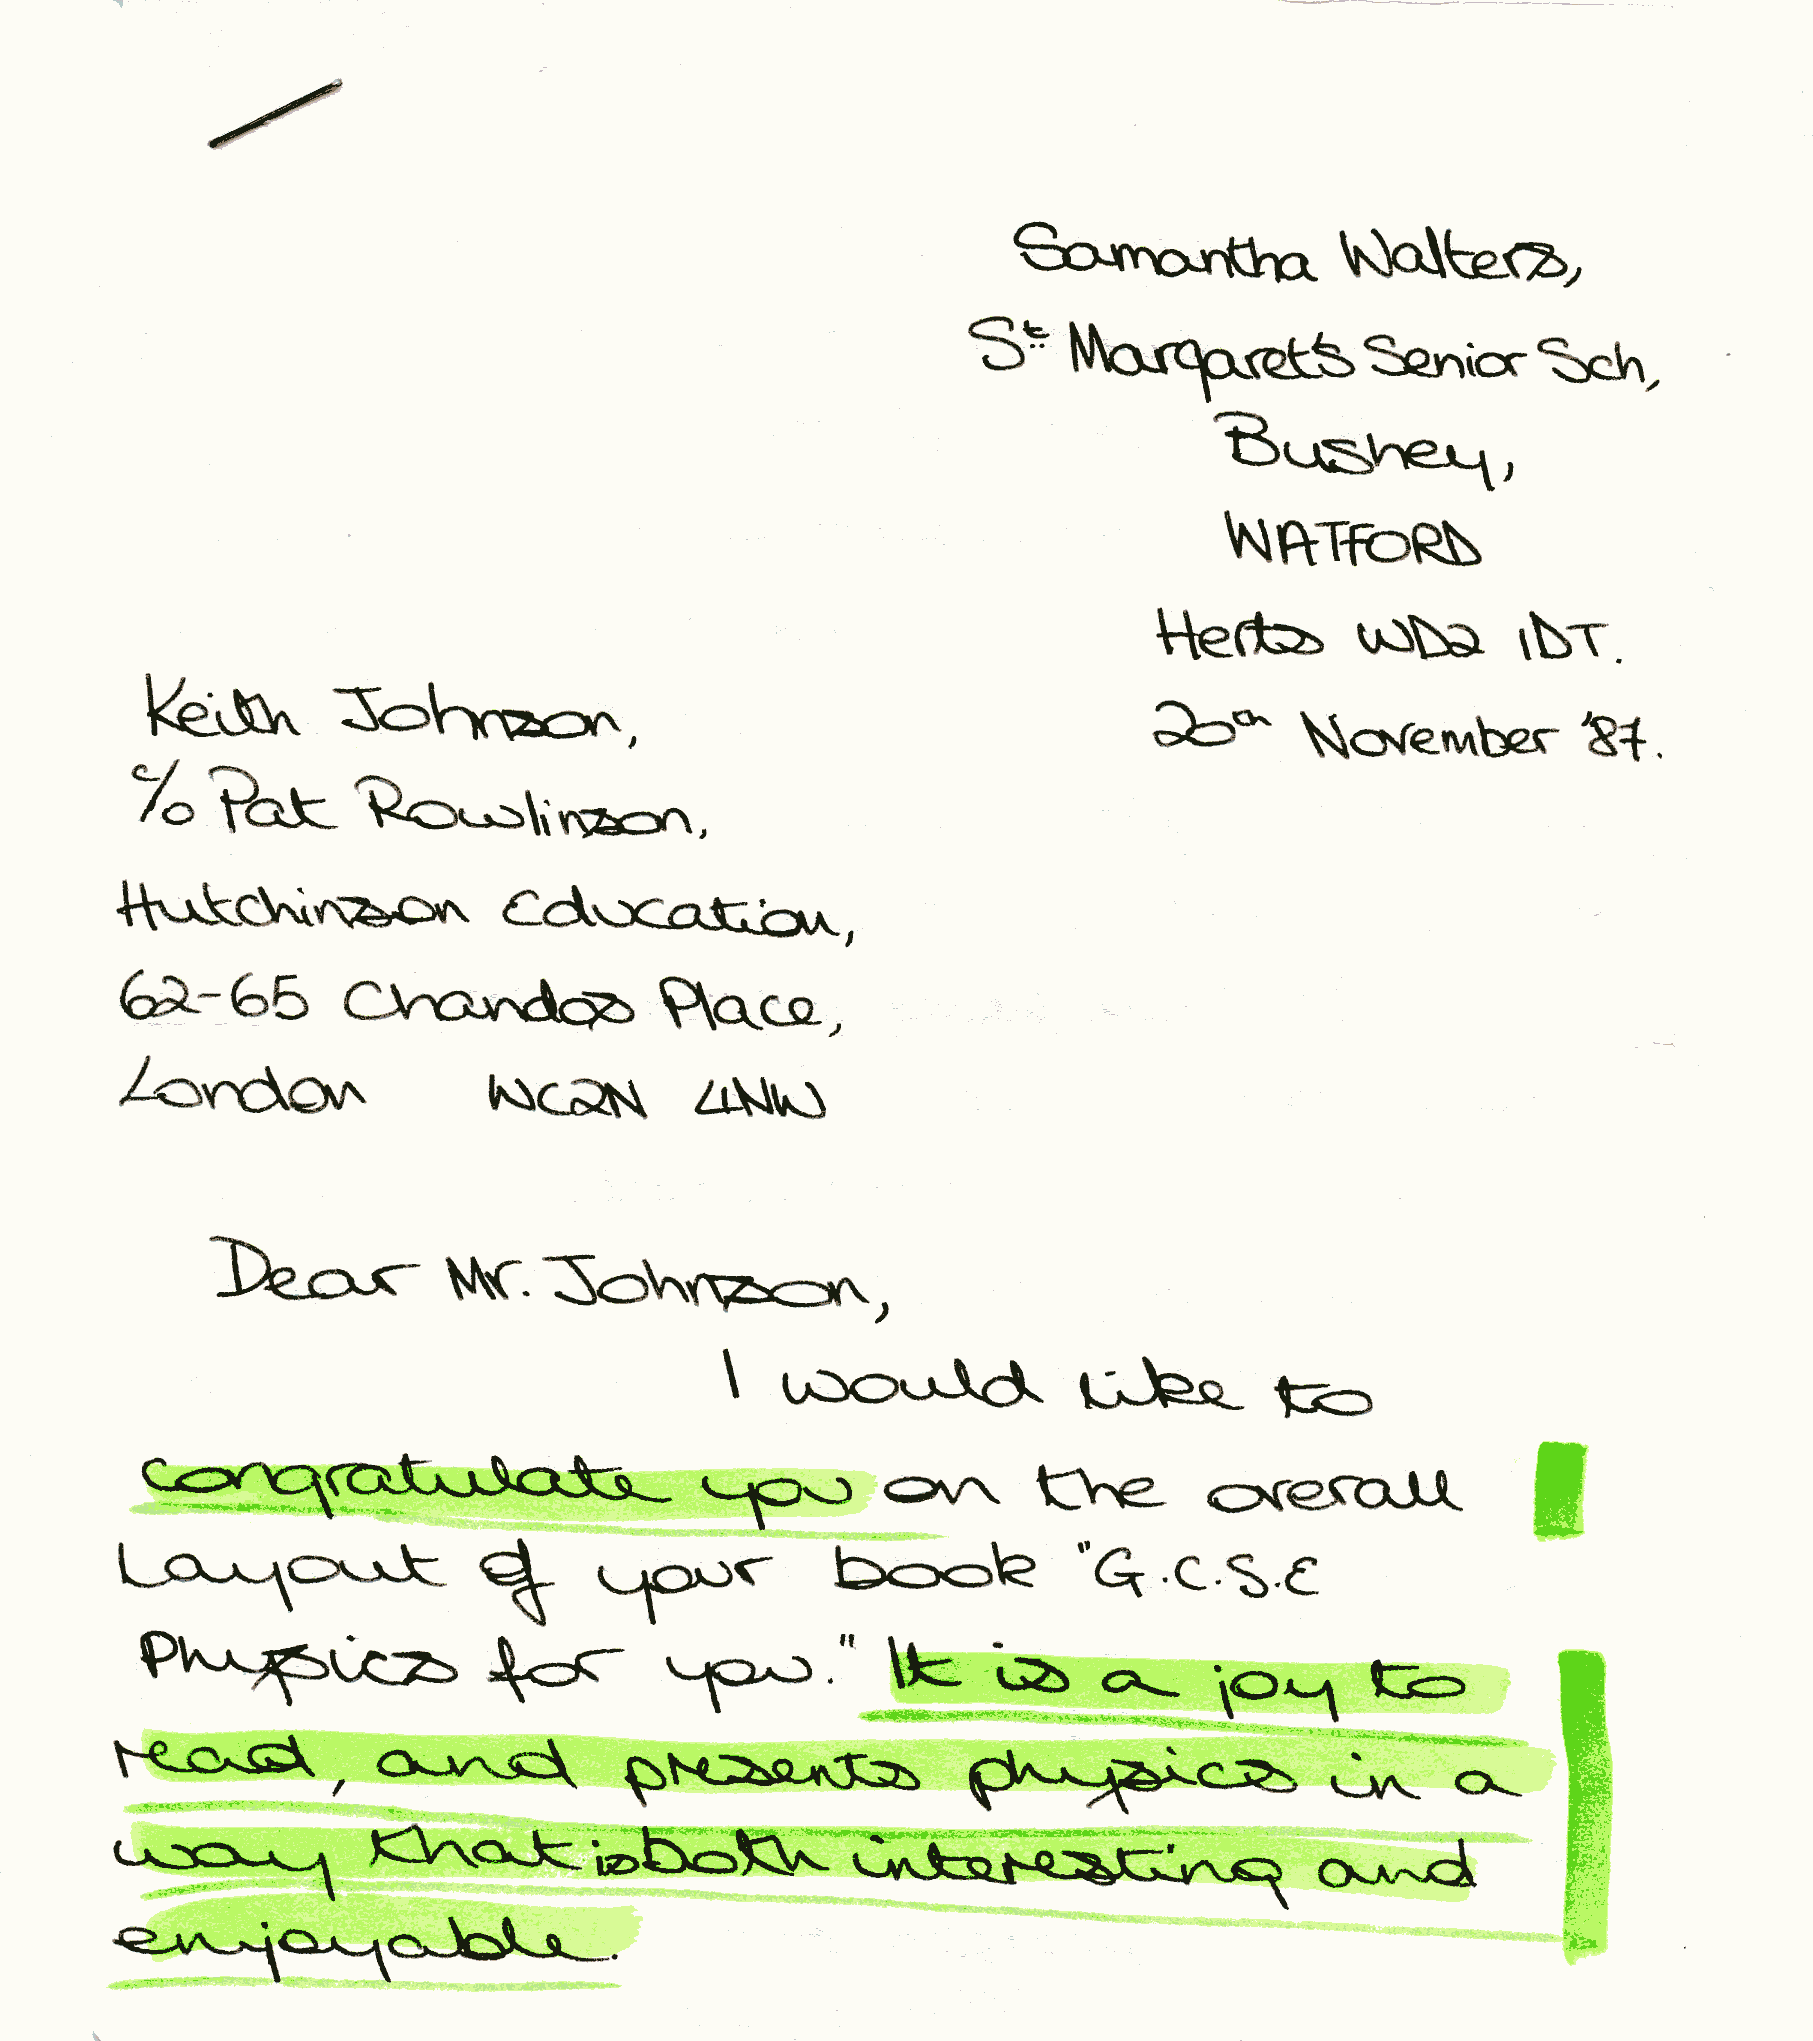 Samantha Walters,
St Margaret's Senior Sch,
Bushey,
WATFORD
Herts WD2 1DT.
20th November '87.
Keith Johnson,
c/o Pat Rowlinson,
Hutchinson Education,
62-65 Chandos Place,
London WC2N 4NW
Dear Mr. Johnson,
I would like to
congratulate you on the overall
Layout of your book "G.C.S.E
Physics for you." It is a joy to
read, and presents physics in a
way that is both interesting and
enjoyable.